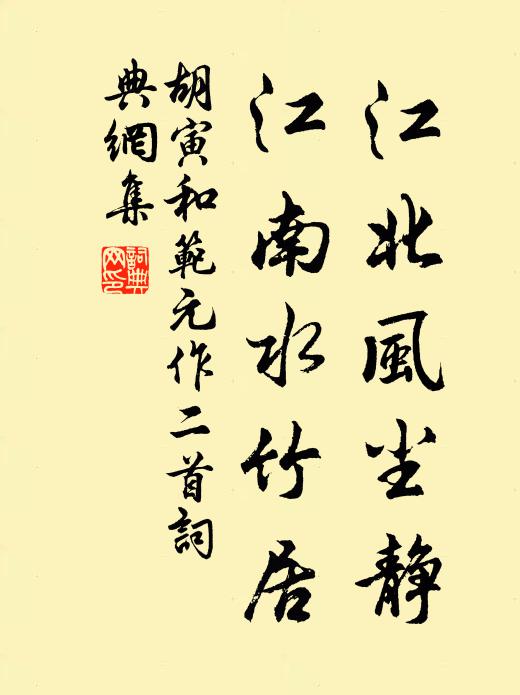 江北風尘静
江南水竹居
胡寅和範元作二首詞
典網集
詞典网印